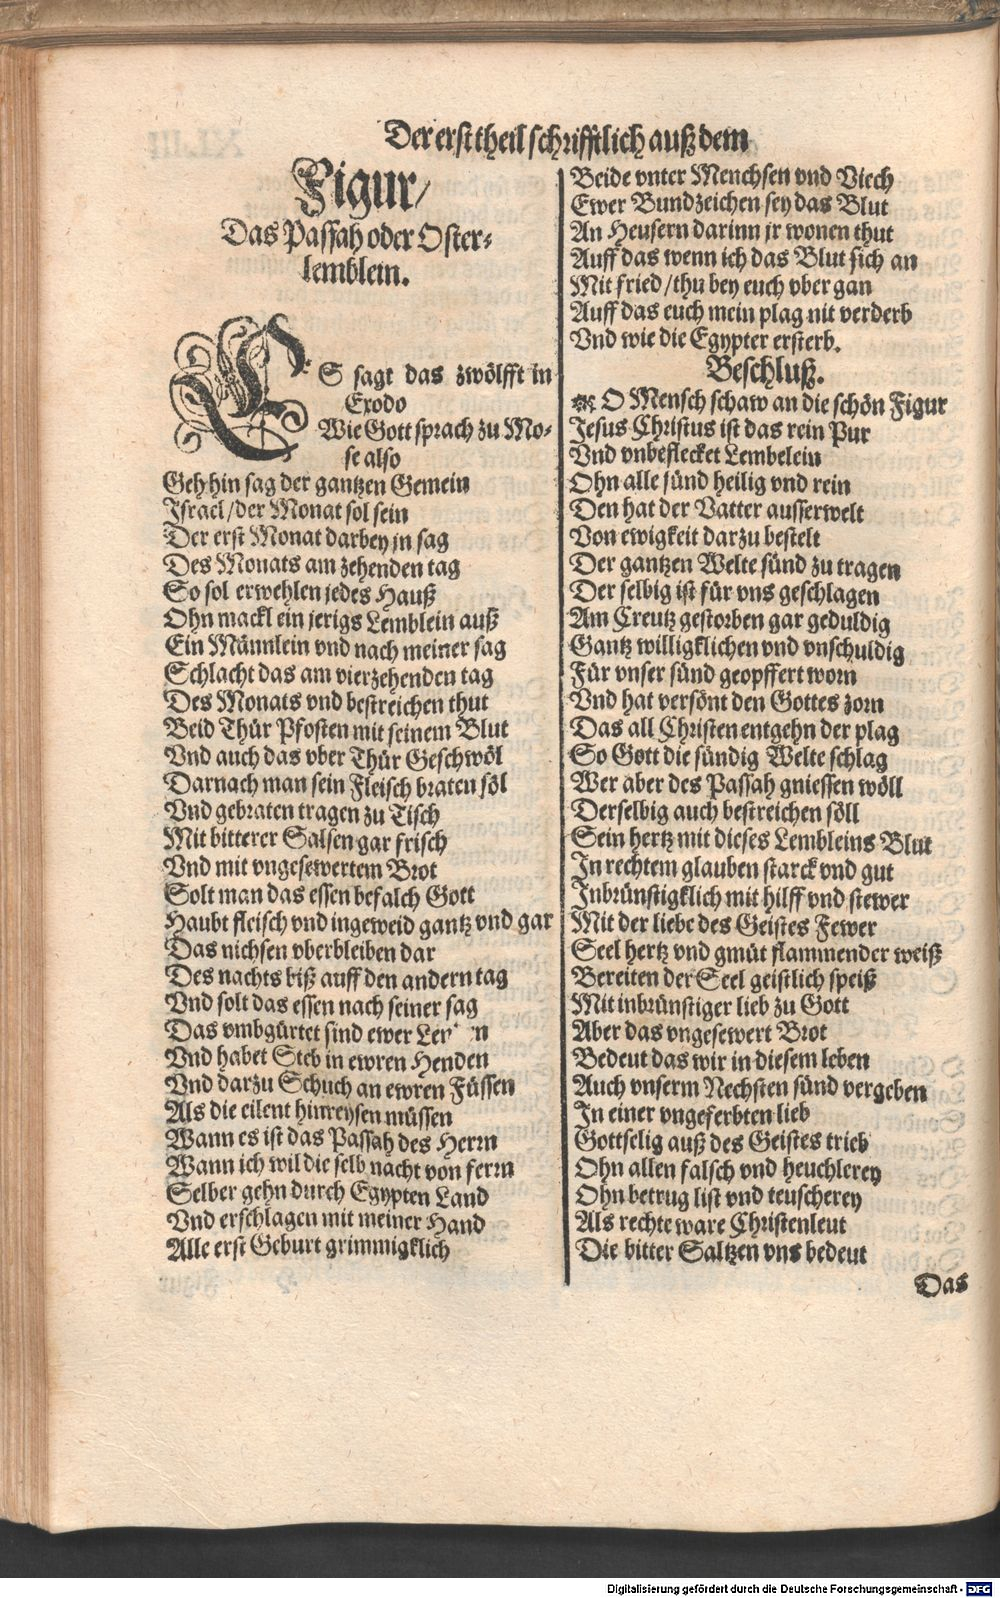 Der erst theil schrifftlich auß dem
Figur/
Das Passah oder Oster-
lemblein.
ES sagt das zwölfft in
Exodo
Wie Gott sprach zu Mo-
se also
Geh hin sag der gantzen Gemein
Israel/der Monat sol sein
Der erst Monat darbey jn sag
Des Monats am zehenden tag
So sol erwehlen jedes Hauß
Ohn mackl ein jerigs Lemblein auß
Ein Männlein vnd nach meiner sag
Schlacht das am vierzehenden tag
Des Monats vnd bestreichen thut
Beid Thür Pfosten mit seinem Blut
Vnd auch das vber Thür Geschwöl
Darnach man sein Fleisch braten söl
Vnd gebraten tragen zu Tisch
Mit bitterer Salsen gar frisch
Vnd mit vngesewertem Brot
Solt man das essen befalch Gott
Haubt fleisch vnd ingeweid gantz vnd gar
Das nichsen vberbleiben dar
Des nachts biß auff den andern tag
Vnd solt das essen nach seiner sag
Das vmbgürtet sind ewer
Vnd habet Steb in ewren Henden
Vnd darzu Schuch an ewren Füssen
Als die eilent hinreysen müssen
Wann es ist das Passah des Herrn
Wann ich wil die selb nacht von ferrn
Selber gehn durch Egypten Land
Vnd erschlagen mit meiner Hand
Alle erst Geburt grimmigklich
Beide vnter Menchsen vnd Viech
Ewer Bundzeichen sey das Blut
An Heusern darinn jr wonen thut
Auff das wenn ich das Blut sich an
Mit fried/thu bey euch vber gan
Auff das euch mein plag nit verderb
Vnd wie die Egypter ersterb.
Beschluß.
O Mensch schaw an die schön Figur
Jesus Christus ist das rein Pur
Vnd vnbeflecket Lembelein
Ohn alle sünd heilig vnd rein
Den hat der Vatter ausserwelt
Von ewigkeit darzu bestelt
Der gantzen Welte sünd zu tragen
Der selbig ist für vns geschlagen
Am Creutz gestorben gar geduldig
Gantz willigklichen vnd vnschuldig
Für vnser sünd geopffert worn
Vnd hat versönt den Gottes zorn
Das all Christen entgehn der plag
So Gott die sündig Welte schlag
Wer aber des Passah gniessen wöll
Derselbig auch bestreichen söll
Sein hertz mit dieses Lembleins Blut
In rechtem glauben starck vnd gut
Inbrünstigklich mit hilff vnd stewer
Mit der liebe des Geistes Fewer
Seel hertz vnd gmüt flammender weiß
Bereiten der Seel geistlich speiß
Mit inbrünstiger lieb zu Gott
Aber das vngesewert Brot
Bedeut das wir in diesem leben
Auch vnserm Nechsten sünd vergeben
In einer vngeferbten lieb
Gottselig auß des Geistes trieb
Ohn allen falsch vnd heuchlerey
Ohn betrug list vnd teuscherey
Als rechte ware Christenleut
Die bitter Saltzen vns bedeut
Das
Digitalisierung gefördert durch die Deutsche Forschungsgemeinschaft - DFG